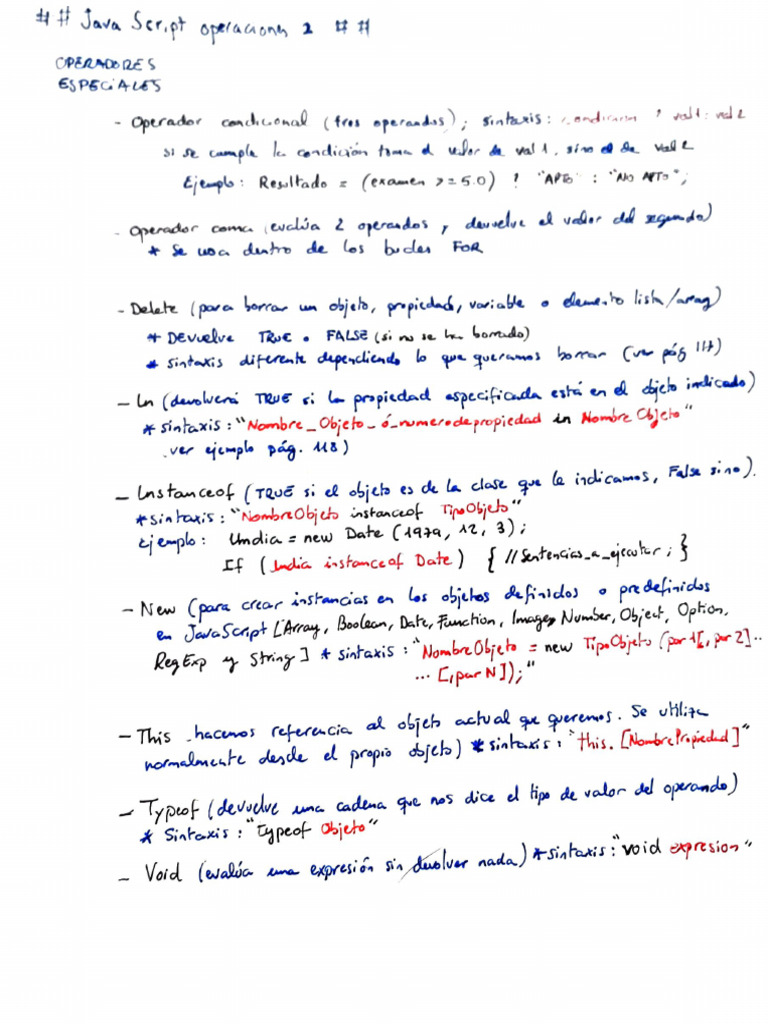 ## Java Script operaciones 2 ##
OPERADORES
ESPECIALES
- Operador condicional (tres operandos); sintaxis: condicion ? val1: val2
si se cumple la condición toma el valor de val1, sino el de val2
Ejemplo: Resultado = (examen >= 5.0) ? "APTO" : "NO APTO";
- Operador coma (evalúa 2 operandos y devuelve el valor del segundo)
* Se usa dentro de los bucles FOR
- Delete (para borrar un objeto, propiedad, variable o elemento lista/array)
* Devuelve TRUE o FALSE (si no se ha borrado)
* sintaxis diferente dependiendo lo que queramos borrar (ver pág 117)
- In (devolverá TRUE si la propiedad especificada está en el objeto indicado)
* sintaxis: "Nombre_Objeto_ó_numerodepropiedad in Nombre Objeto"
ver ejemplo pág. 118)
- Instanceof (TRUE si el objeto es de la clase que le indicamos, False sino).
* sintaxis: "NombreObjeto instanceof TipoObjeto"
Ejemplo: Undia = new Date (1979, 12, 3);
If (Undia instanceof Date) { //Sentencias_a_ejecutar; }
- New (para crear instancias en los objetos definidos o predefinidos
en JavaScript [Array, Boolean, Date, Function, Image, Number, Object, Option,
RegExp y String] * sintaxis: "NombreObjeto = new TipoObjeto (par1[, par2]...
... [, parN]);"
- This hacemos referencia al objeto actual que queremos. Se utiliza
normalmente desde el propio objeto) * sintaxis: "this. [NombrePropiedad]"
- Typeof (devuelve una cadena que nos dice el tipo de valor del operando)
* Sintaxis: "typeof Objeto"
- Void (evalúa una expresión sin devolver nada) * sintaxis: "void expresion"